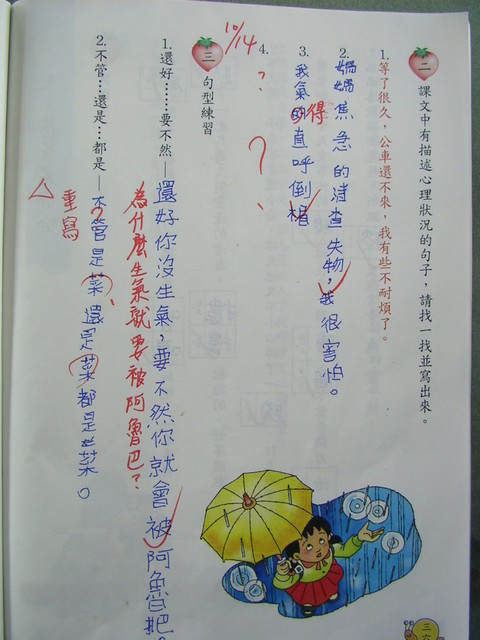 二
課文中有描述心理狀況的句子，請找一找並寫出來。
1.等了很久，公車還不來，我有些不耐煩了。
2.媽媽焦急的清查失物，我很害怕。
3.我氣的直呼倒楣
得
4.？
？
10/14
三
句型練習
1.還好……要不然—還好你沒生氣，要不然你就會被阿魯把。
為什麼生氣就要被阿魯巴？
2.不管…還是…都是—不管是菜還是菜都是菜。
？
重寫
△
三